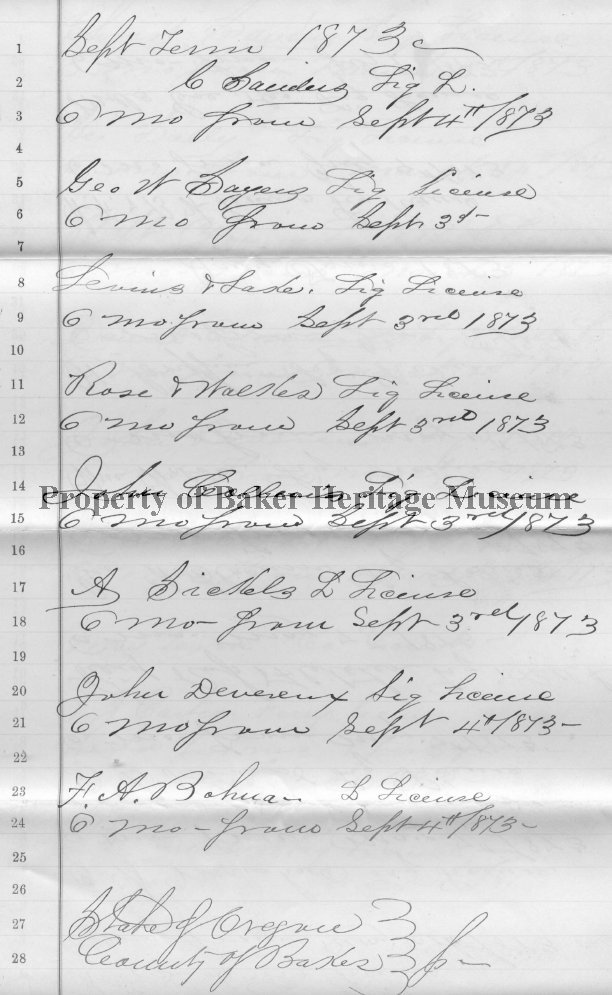 1 Sept Term 1873
2 C Sanders Liq L.
3 6 Mo from Sept 4th/1873
4
5 Geo W Liq License
6 6 Mo from Sept 3d-
7
8 Levins & Lake. Liq License
9 6 Mo from Sept 3rd 1873
10
11 Rose & Walker Liq License
12 6 Mo from Sept 3rd 1873
13
14 John Liq License
Property of Baker Heritage Museum
15 6 Mo from Sept 3rd/1873
16
17 A Sickels L License
18 6 Mo- from Sept 3rd/1873
19
20 John Devereux Liq License
21 6 Mo from Sept 4th/1873-
22
23 F. A. Bohna- L License
24 6 Mo- from Sept 4th/1873-
25
26
27 State of Oregon }
28 County of Baker }